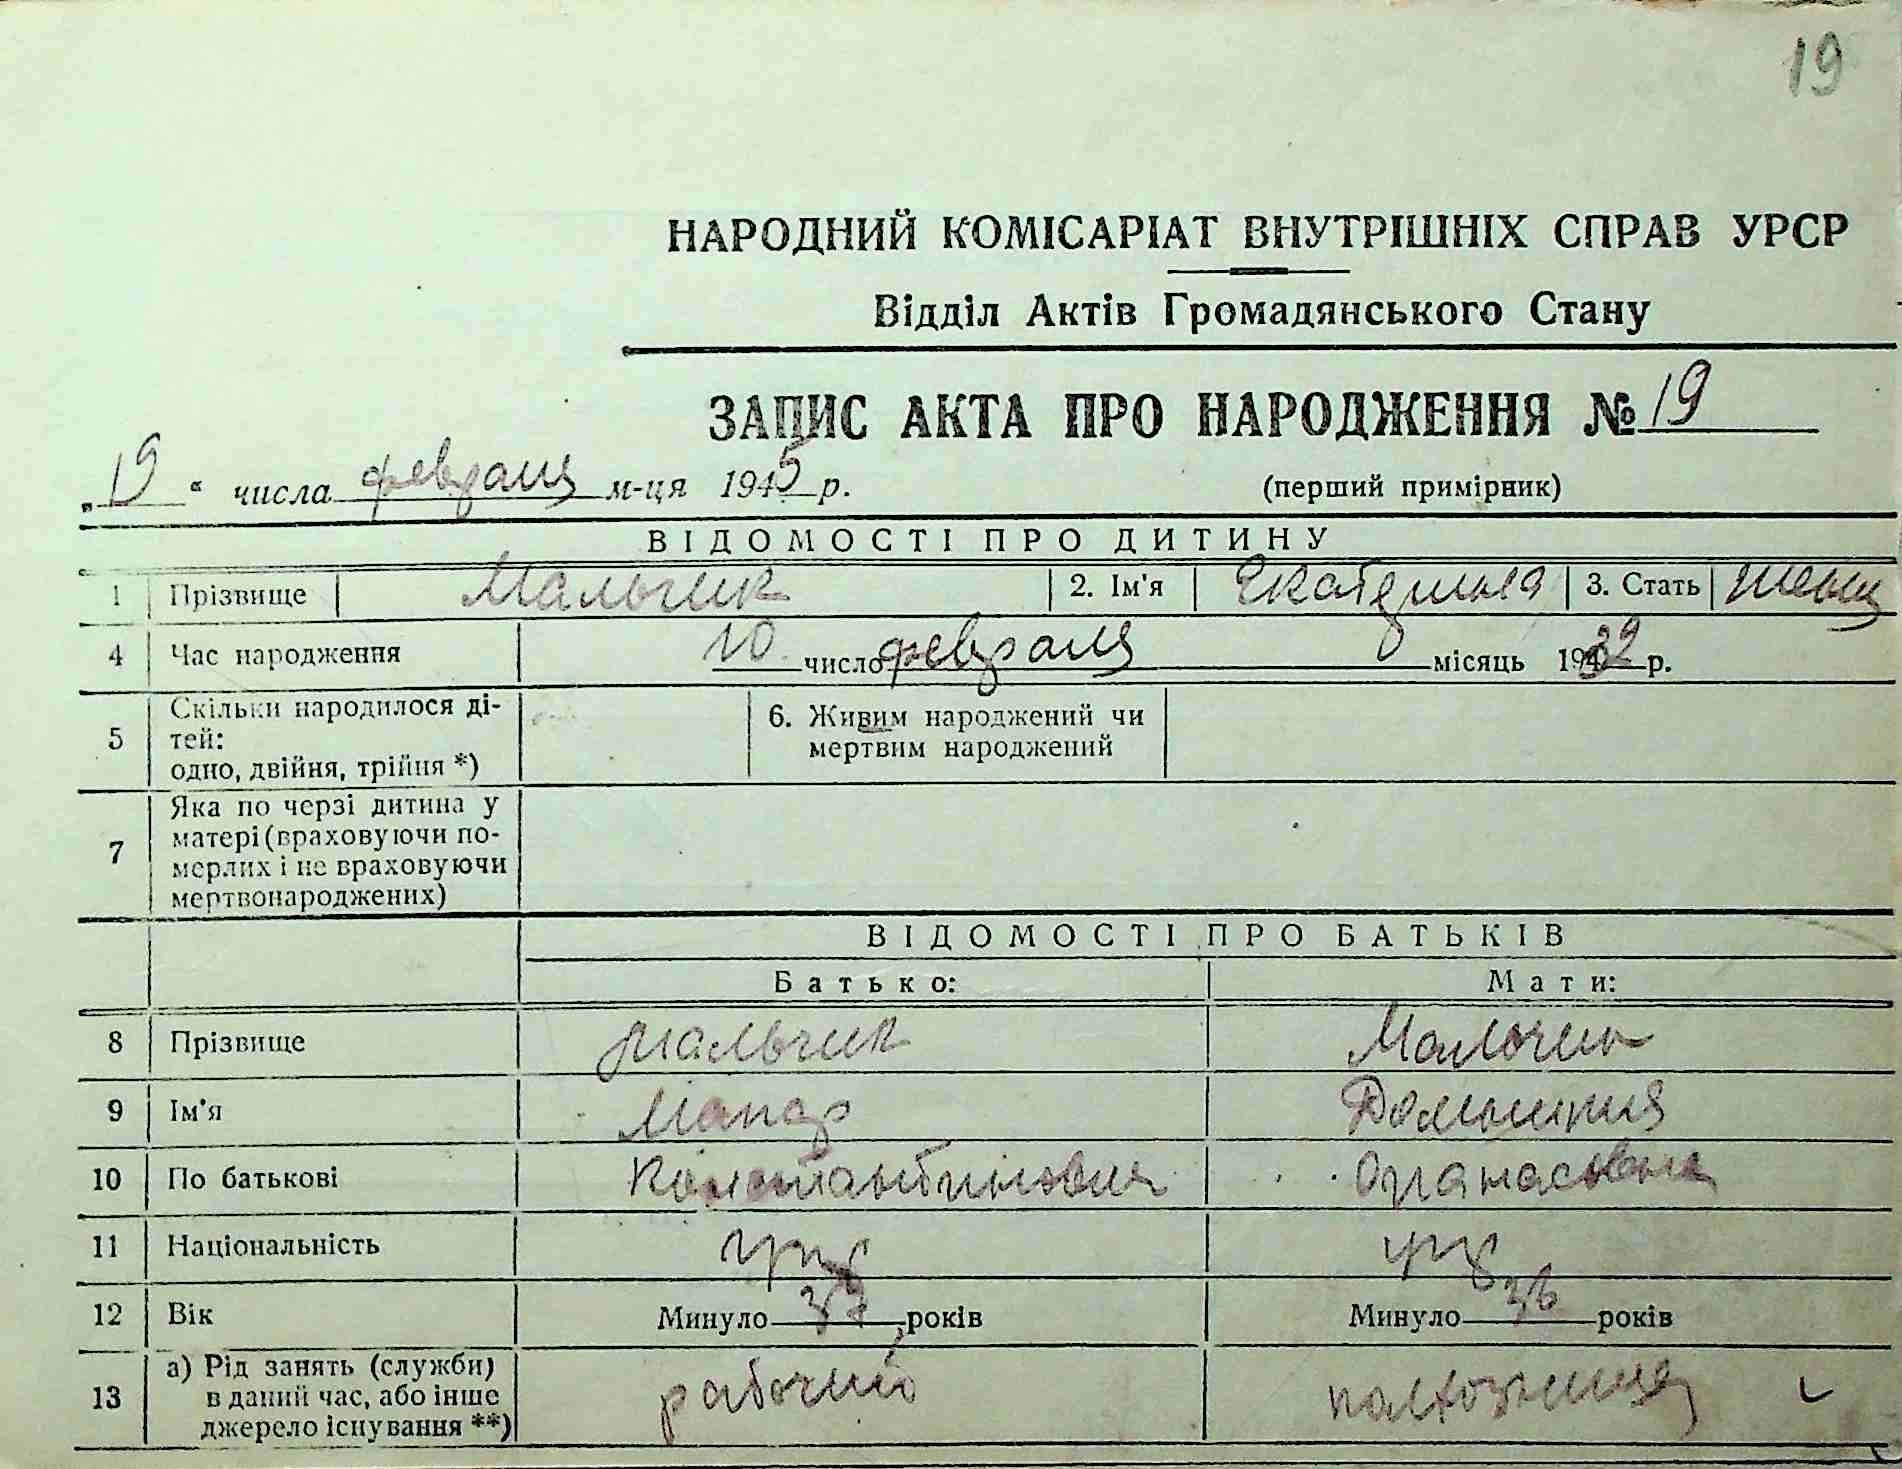 19
НАРОДНИЙ КОМІСАРІАТ ВНУТРІШНІХ СПРАВ УРСР
Відділ Актів Громадянського Стану
ЗАПИС АКТА ПРО НАРОДЖЕННЯ № 19
„19“ числа февраля м-ця 1945 р. (перший примірник)
ВІДОМОСТІ ПРО ДИТИНУ
1 Прізвище Мальчик 2. Ім'я Екатерина 3. Стать женщ
4 Час народження 10 число февраля місяць 1939 р.
5 Скільки народилося ді-
тей:
одно, двійня, трійня *)
6. Живим народжений чи
мертвим народжений
7 Яка по черзі дитина у
матері (враховуючи по-
мерлих і не враховуючи
мертвонароджених)
ВІДОМОСТІ ПРО БАТЬКІВ
Батько: Мати:
8 Прізвище Мальчик Мальчик
9 Ім'я Макар
10 По батькові Константинович Опанасовна
11 Національність укр укр
12 Вік Минуло 37 років Минуло 36 років
13 а) Рід занять (служби)
в даний час, або інше
джерело існування **)
рабочий колхозница